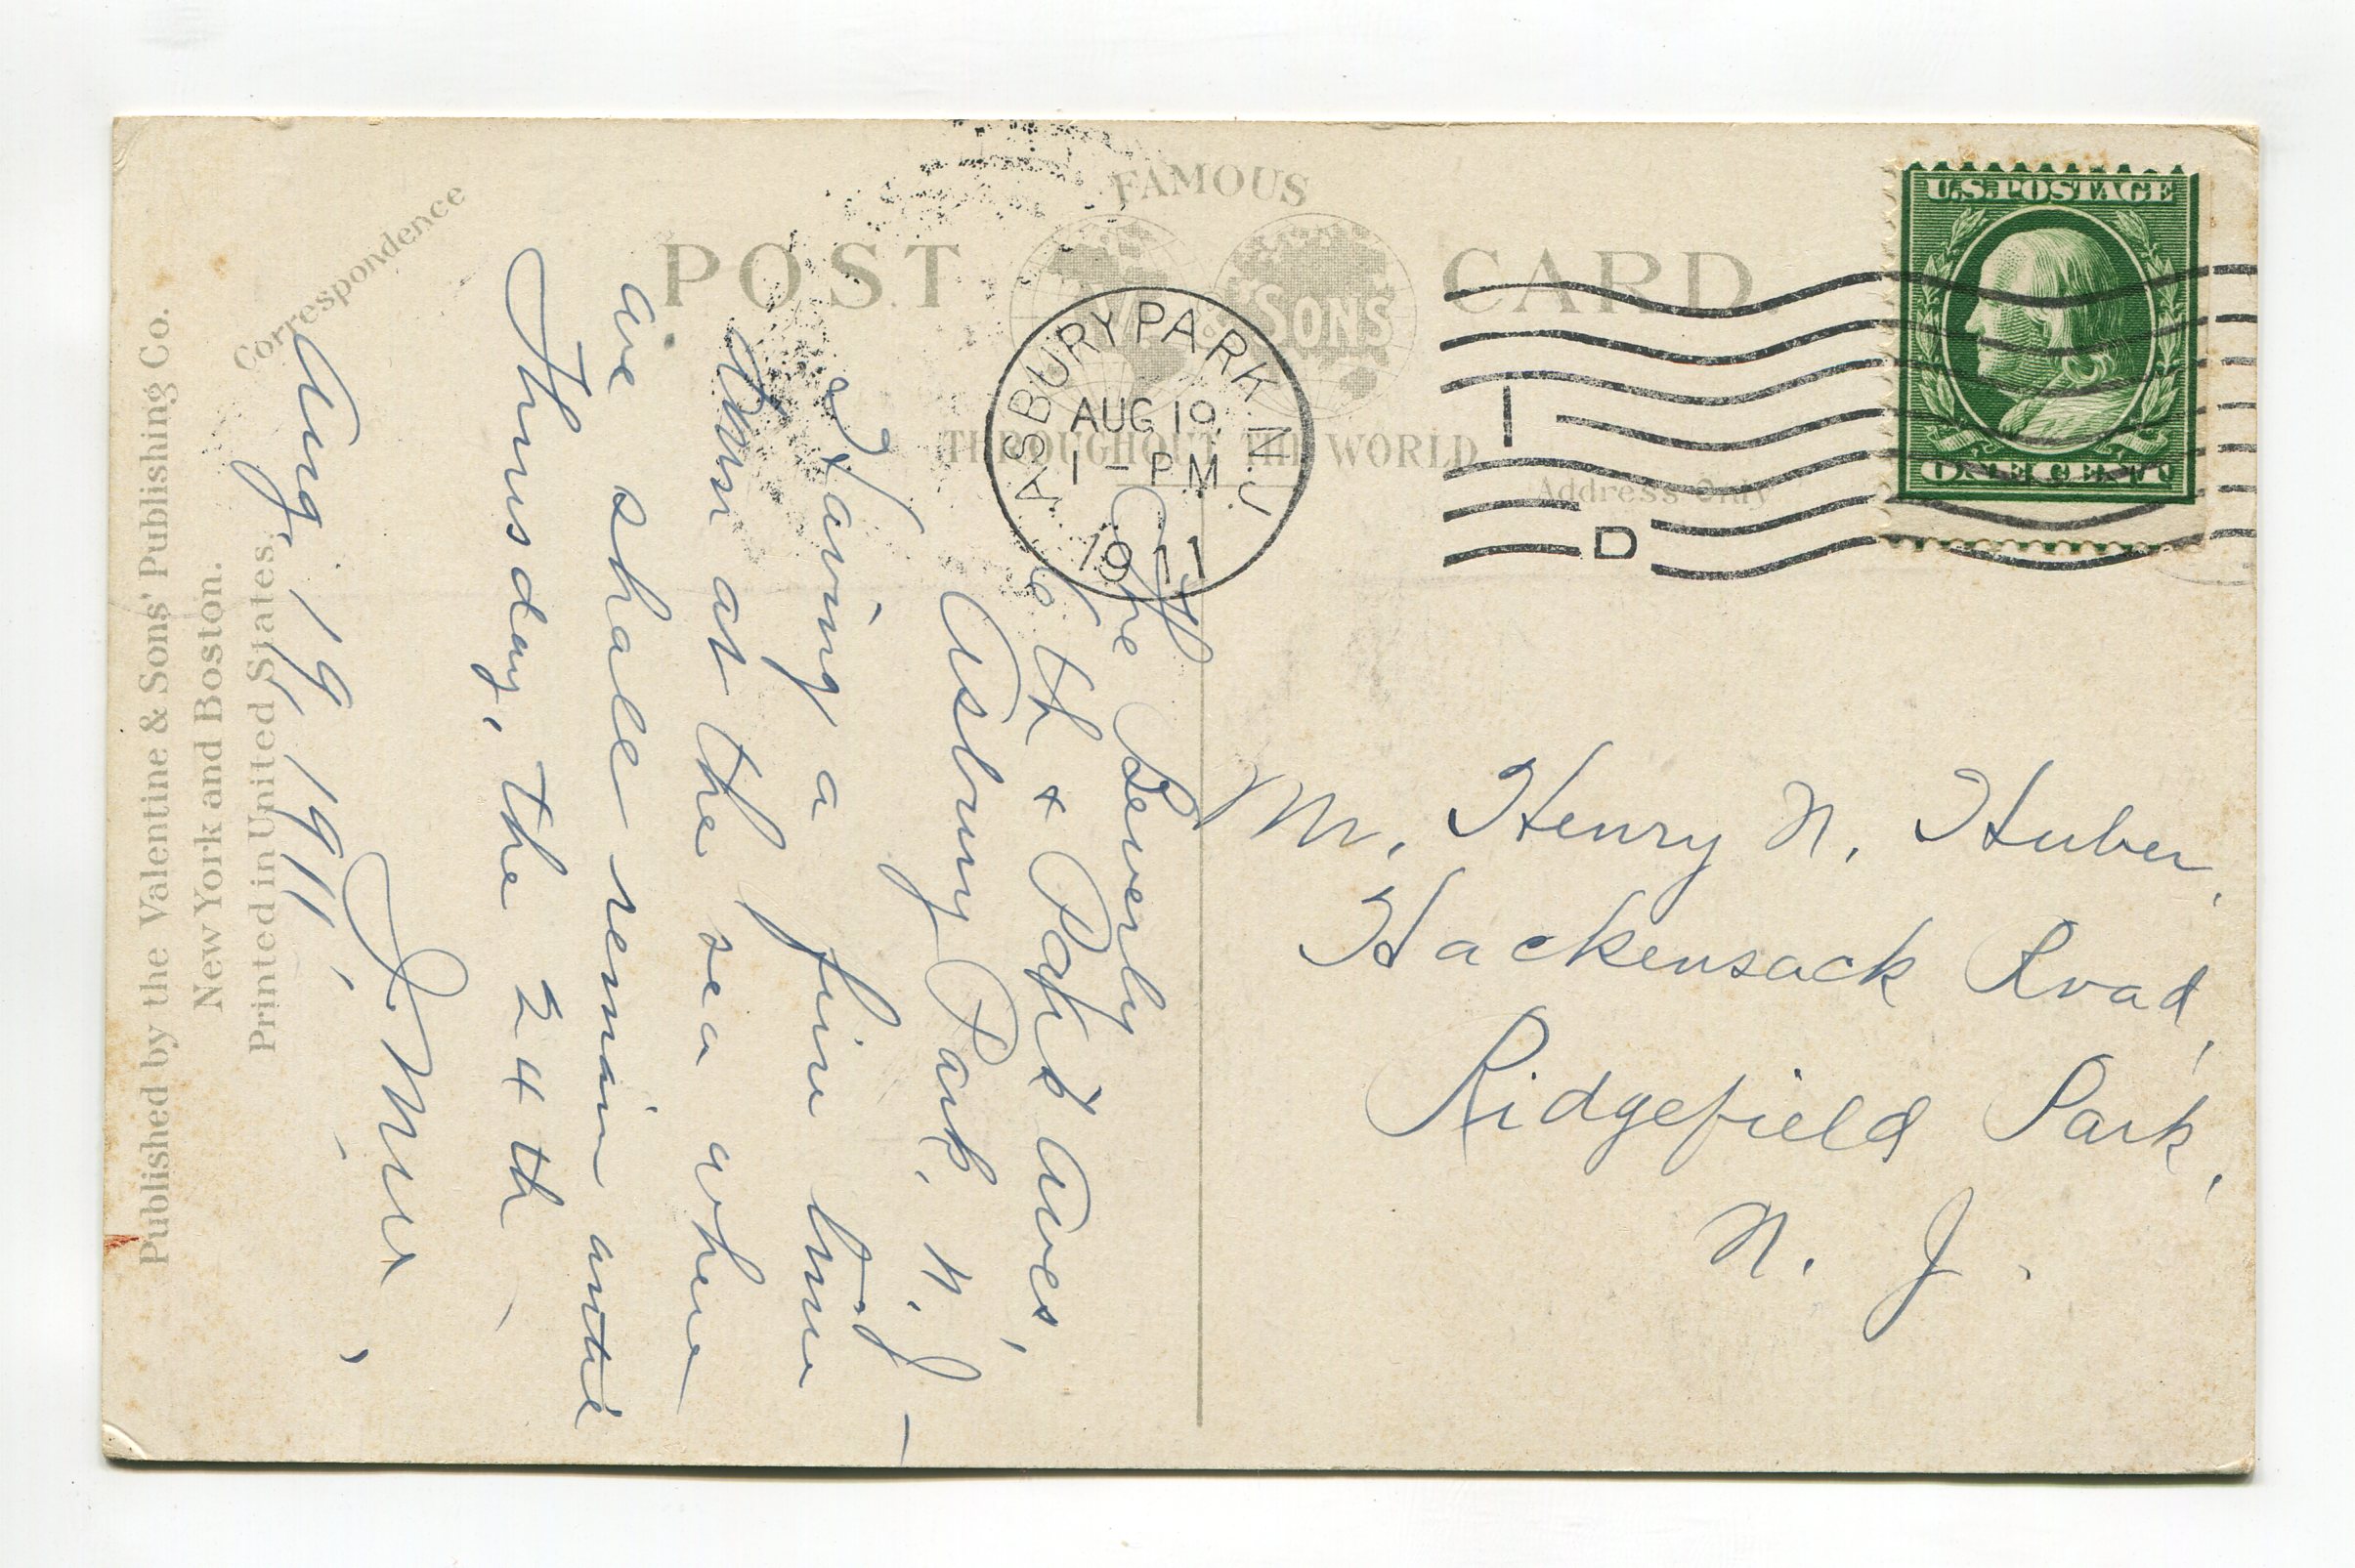 POST CARD
FAMOUS
V & SONS
THROUGHOUT THE WORLD
Correspondence
Address Only
Published by the Valentine & Sons' Publishing Co.
New York and Boston.
Printed in United States.
U.S. POSTAGE
ASBURY PARK N.J.
AUG 19
1 - PM
1911
I
D
Beverly
6th & Aves,
Asbury Park, N. J -
Having a fine time
down at the sea where
we shall remain until
Thursday, the 24th -
Aug, 19, 1911,
Mr. Henry N. Huber,
Hackensack Road,
Ridgefield Park,
N. J.